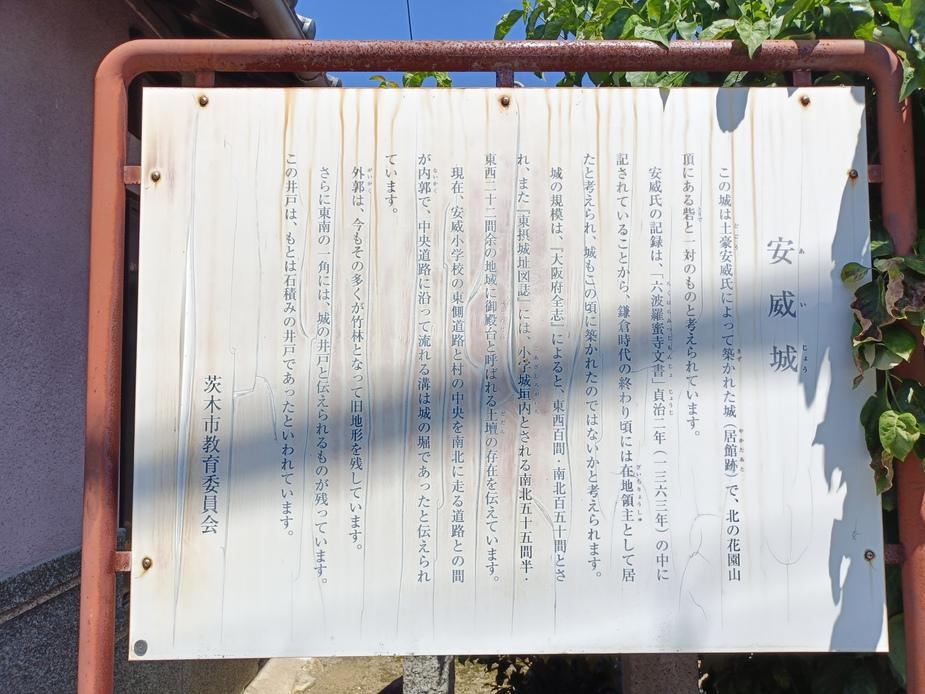 安威城
この城は土豪安威氏によって築かれた城（居館跡）で、北の花園山
頂にある砦と一対のものと考えられています。
安威氏の記録は、「六波羅蜜寺文書」貞治二年（一三六三年）の中に
記されていることから、鎌倉時代の終わり頃には在地領主として居
たと考えられ、城もこの頃に築かれたのではないかと考えられます。
城の規模は、『大阪府全志』によると、東西百間・南北百五十間とさ
れ、また『東摂城址図誌』には、小字城垣内とされる南北五十五間半・
東西二十二間余の地域に御殿台と呼ばれる土壇の存在を伝えています。
現在、安威小学校の東側道路と村の中央を南北に走る道路との間
が内郭で、中央道路に沿って流れる溝は城の堀であったと伝えられ
ています。
外郭は、今もその多くが竹林となって旧地形を残しています。
さらに東南の一角には、城の井戸と伝えられるものが残っています。
この井戸は、もとは石積みの井戸であったといわれています。
茨木市教育委員会